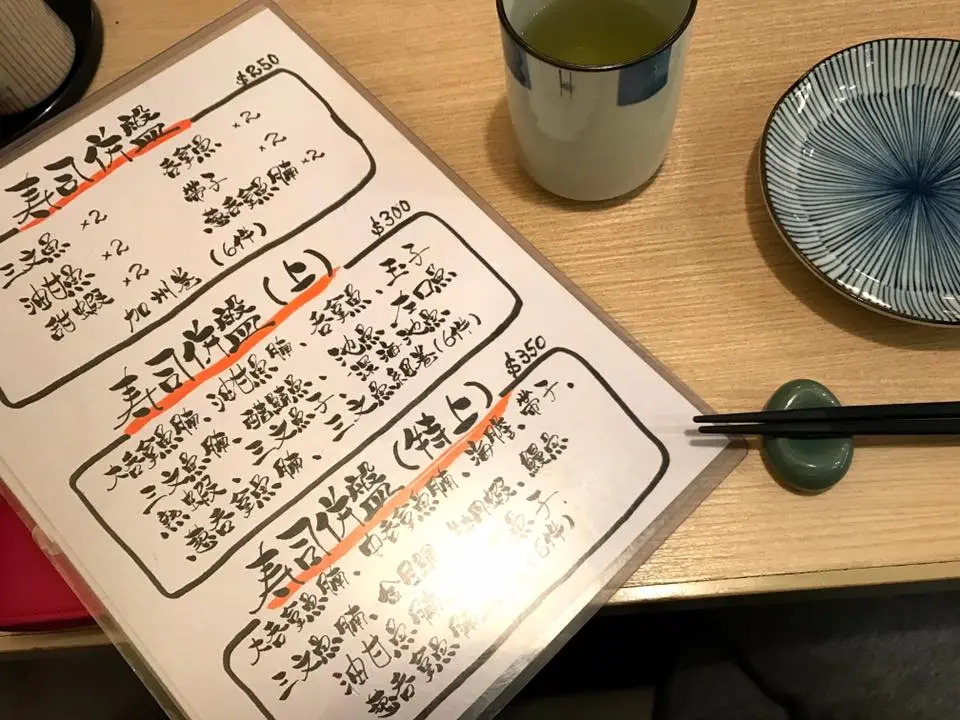 寿司併盤 $850
三文魚 ×2 吞拿魚 ×2
油甘魚 ×2 帶子 ×2
甜蝦 ×2 葱吞拿魚腩 ×2
加州卷 (6件)
寿司併盤(上) $300
大吞拿魚腩、油甘魚腩、吞拿魚 玉子
三文魚腩、醋鯖魚、池魚、左口魚
熟蝦、三文魚子、深海池魚
葱吞拿魚腩、三文魚細卷(6件)
寿司併盤(特上) $350
大吞拿魚腩、中吞拿魚腩、海膽、帶子、
三文魚腩、金目鯛 蝦、鰻魚
油甘魚腩 魚子、
葱吞拿魚腩 (6件)